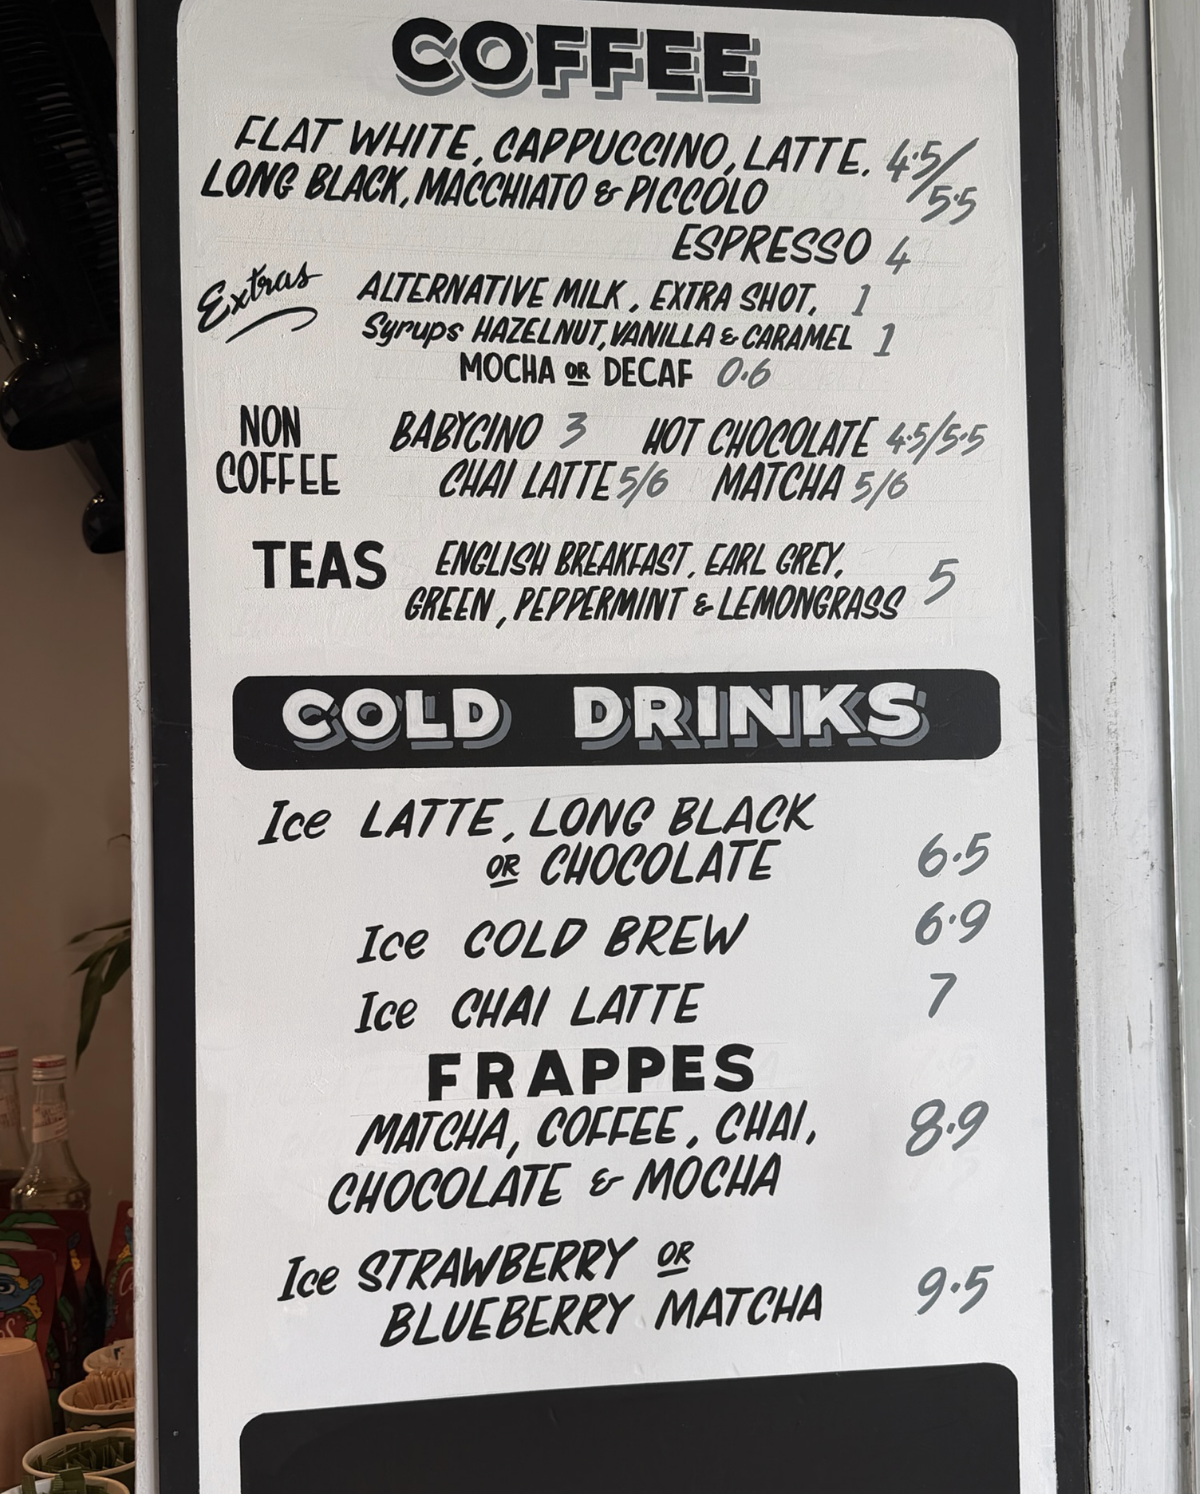 COFFEE
FLAT WHITE, CAPPUCCINO, LATTE, 4.5/
LONG BLACK, MACCHIATO & PICCOLO 5.5
ESPRESSO 4
Extras
ALTERNATIVE MILK, EXTRA SHOT, 1
Syrups HAZELNUT, VANILLA & CARAMEL 1
MOCHA OR DECAF 0.6
NON COFFEE
BABYCINO 3 HOT CHOCOLATE 4.5/5.5
CHAI LATTE 5/6 MATCHA 5/6
TEAS
ENGLISH BREAKFAST, EARL GREY,
GREEN, PEPPERMINT & LEMONGRASS 5
COLD DRINKS
Ice LATTE, LONG BLACK
OR CHOCOLATE 6.5
Ice COLD BREW 6.9
Ice CHAI LATTE 7
FRAPPES
MATCHA, COFFEE, CHAI, 8.9
CHOCOLATE & MOCHA
Ice STRAWBERRY OR
BLUEBERRY MATCHA 9.5